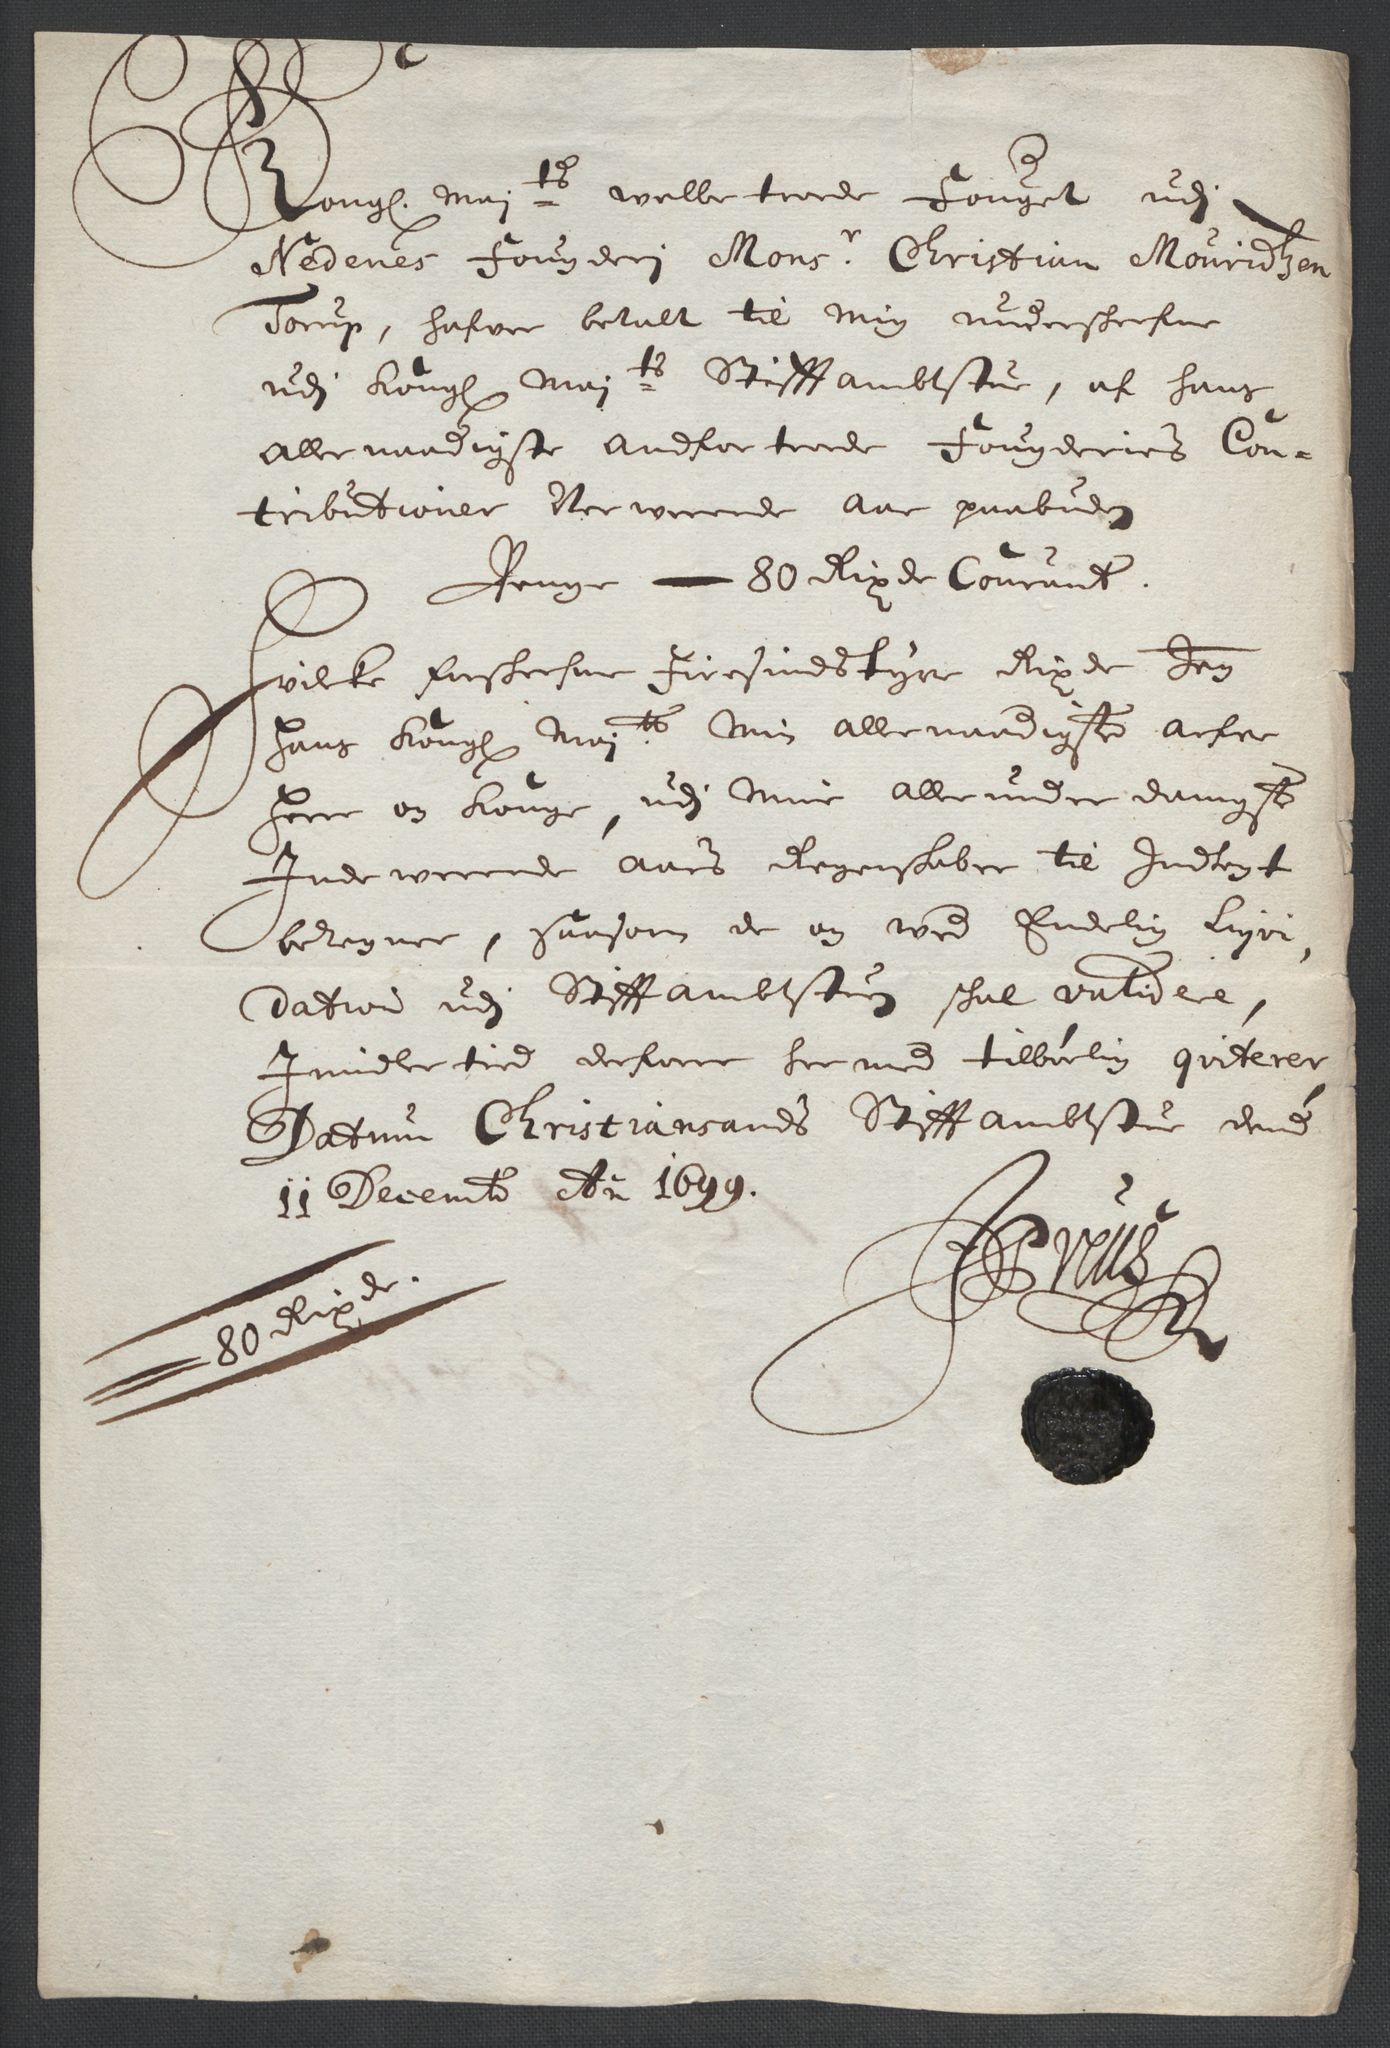 Kongl. Maj.ts welbetroede Fouget udj
Nedenes Fougderj Mons.r Christian Mouridtzen
Torup, hafver betalt til mig underskrefne
udj Kongl Maj.ts Stifftambtstue, af hans
allernaadigste andfortroede Fougderies Con-
tributioner Nerwerende Aar paabuden
Penge — 80 Rixdr Courant.
Hvilke forskrefne Firesindstyve Rixdr Jeg
Hans Kongl Maj.ts Min allernaadigste arfve
Herre og Konge, udj Mine allerunderdanigste
Indewerende Aars Regenskaber til Indtegt
beregner, saasom de og wed Endelig Liqvi,
dation udj Stifftambtstuen skal validere,
Imidlertid derfore hermed tilbørlig qviterer
Datum Christiansands Stifftambtstue dend
11 Decembr Ao 1699.
80 Rixdr.